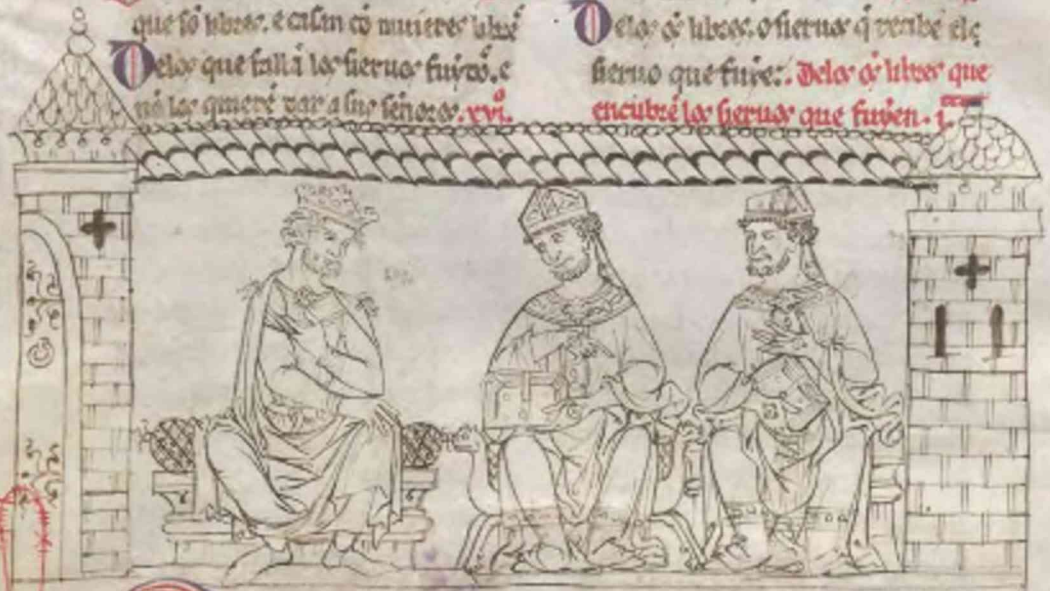 que sõ libres. e casan cõ muieres
Delos que fallã los sieruos fuydõ. e
nõ los quierẽ dar a sus señores. xviº.
Delos oẽs libres. o sieruos q̃ recibe
sieruo que fuye. Delos oẽs libres que
encubrẽ los sieruos que fuyen. i.